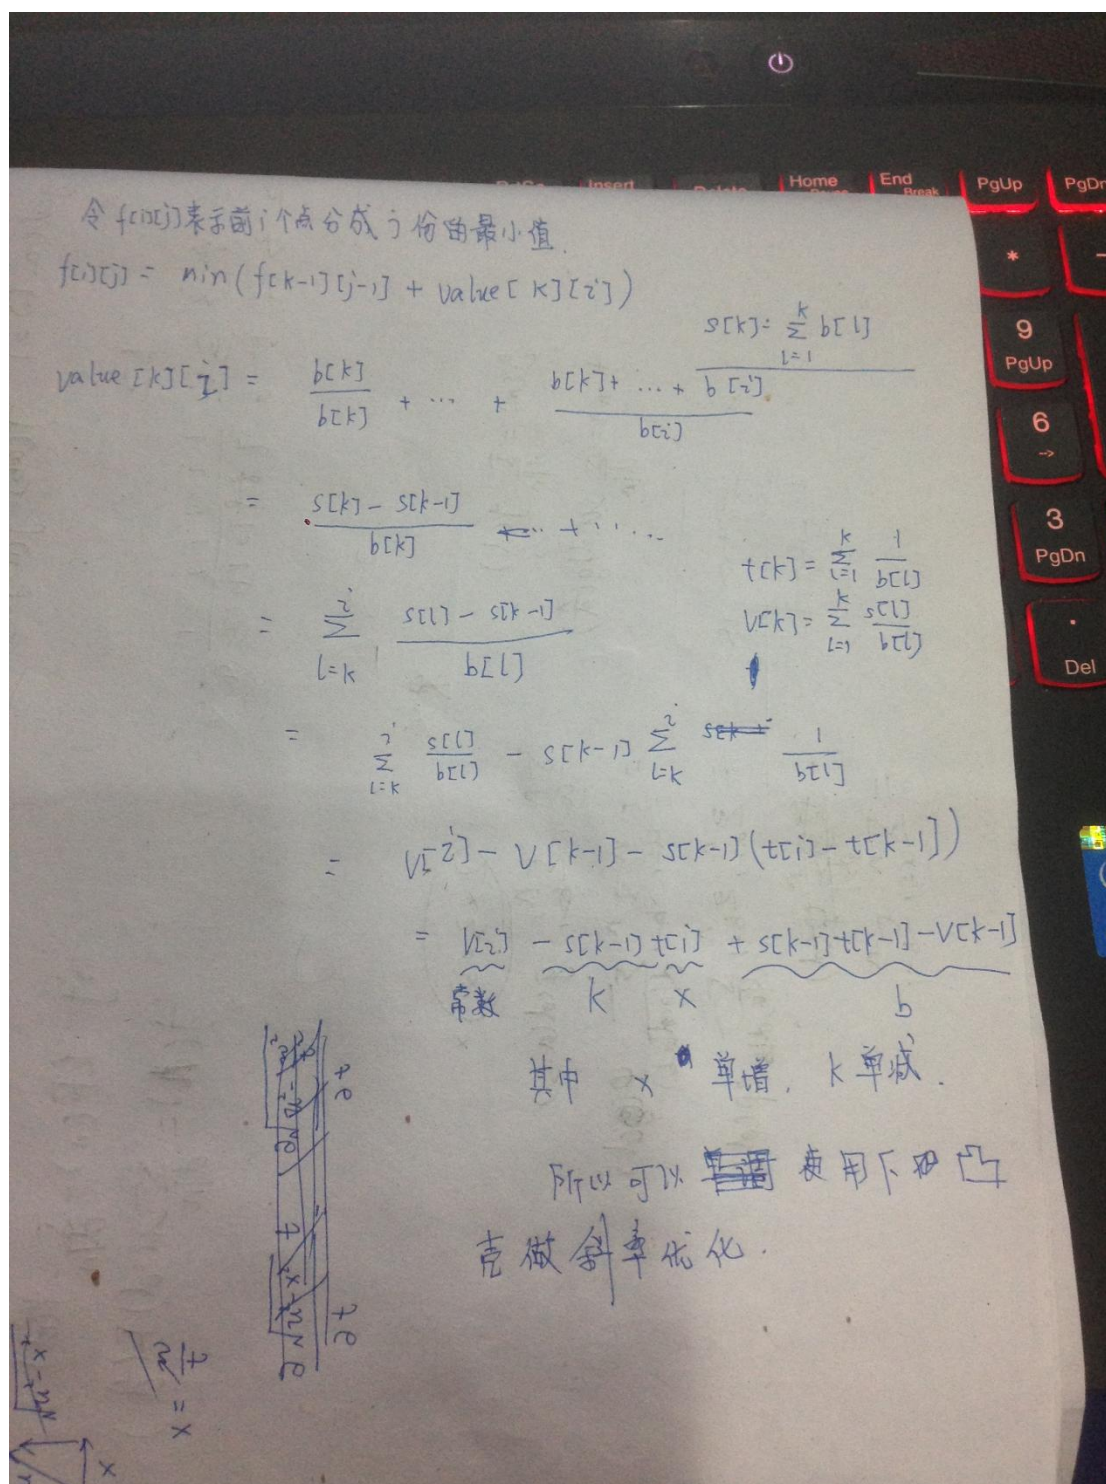 Home
End
Break
PgUp
PgDn
Insert
Delete
*
9
PgUp
6
->
3
PgDn
.
Del
令 f[i][j]表示前 i 个点分成 j 份的最小值.
f[i][j] = min(f[k-1][j-1] + value[k][i])
s[k] = ∑_{l=1}^{k} b[l]
value[k][i] = b[k]/b[k] + ... + (b[k]+ ... + b[i])/b[i]
= (s[k] - s[k-1])/b[k] + ......
t[k] = ∑_{l=1}^{k} 1/b[l]
= ∑_{l=k}^{i} (s[l] - s[k-1])/b[l]
v[k] = ∑_{l=1}^{k} s[l]/b[l]
= ∑_{l=k}^{i} s[l]/b[l] - s[k-1] ∑_{l=k}^{i} 1/b[l]
= v[i] - v[k-1] - s[k-1](t[i] - t[k-1])
= v[i] - s[k-1]t[i] + s[k-1]t[k-1] - v[k-1]
常数 k x b
其中 x 单增. k 单减.
所以可以 使用下凸
壳做斜率优化.